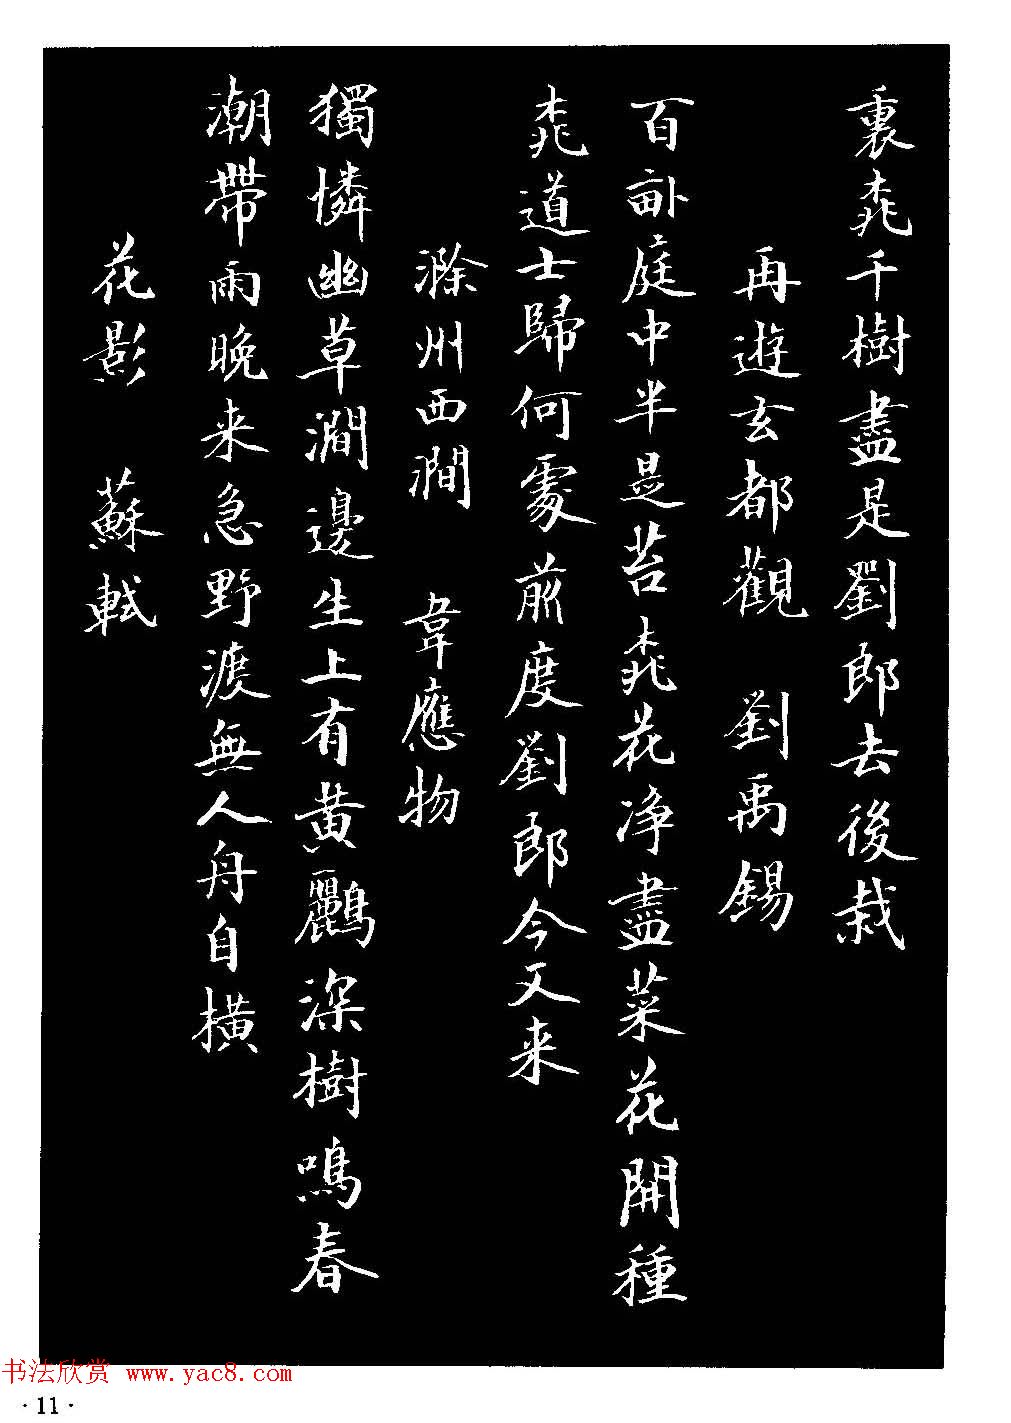 裏桃千樹盡是劉郎去後栽
再遊玄都觀 劉禹錫
百畝庭中半是苔桃花净盡菜花開種
桃道士歸何處前度劉郎今又来
滁州西澗 韋應物
獨憐幽草澗邊生上有黄鸝深樹鳴春
潮帶雨晚来急野渡無人舟自橫
花影 蘇軾
书法欣赏 www.yac8.com
·11·